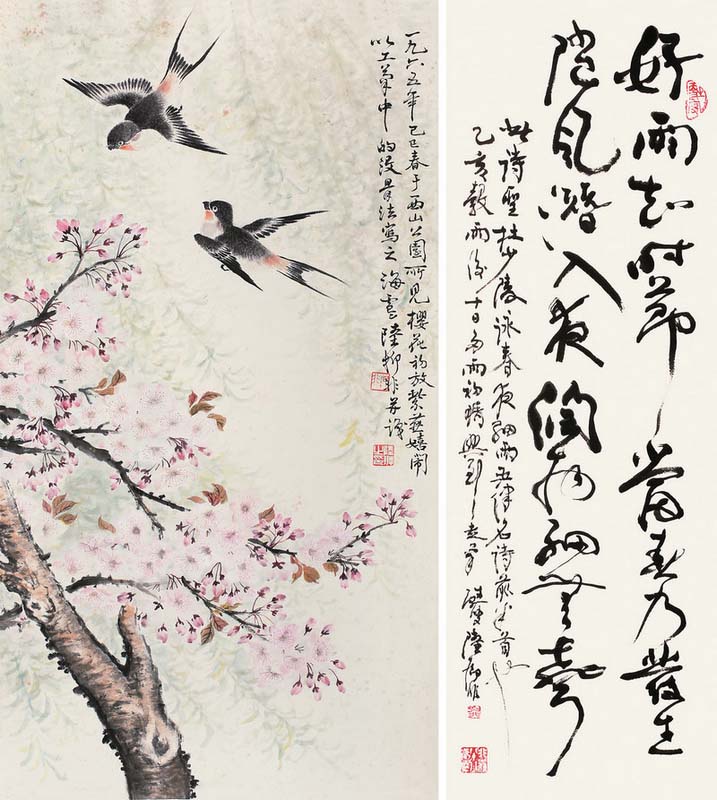 一九六五年乙巳春于西山公園所見櫻花初放紫燕嬉鬧
以工筆中的沒骨法寫之 海雲 陸抑非并識
好雨知時節當春乃發生
隨風潛入夜潤物細無聲
此詩聖杜少陵詠春夜細雨五律名詩
乙亥穀雨後十日多雨初晴興到走筆 陸抑非